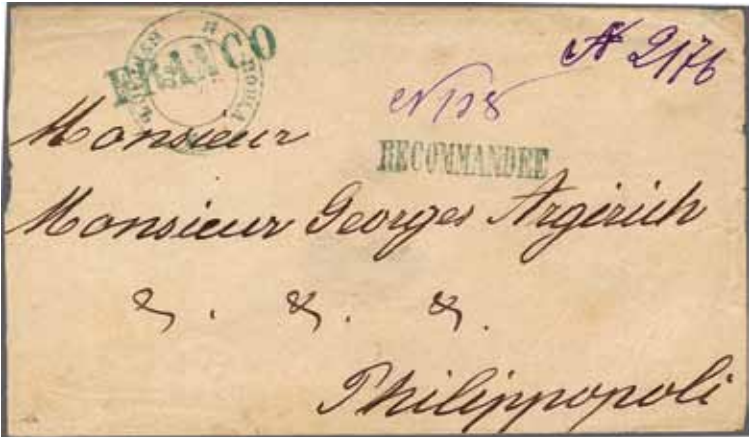 FRANCO
№ 2176
№ 118
RECOMMANDEE
Monsieur
Monsieur Georges Argirich
&. &. &.
Philippopoli